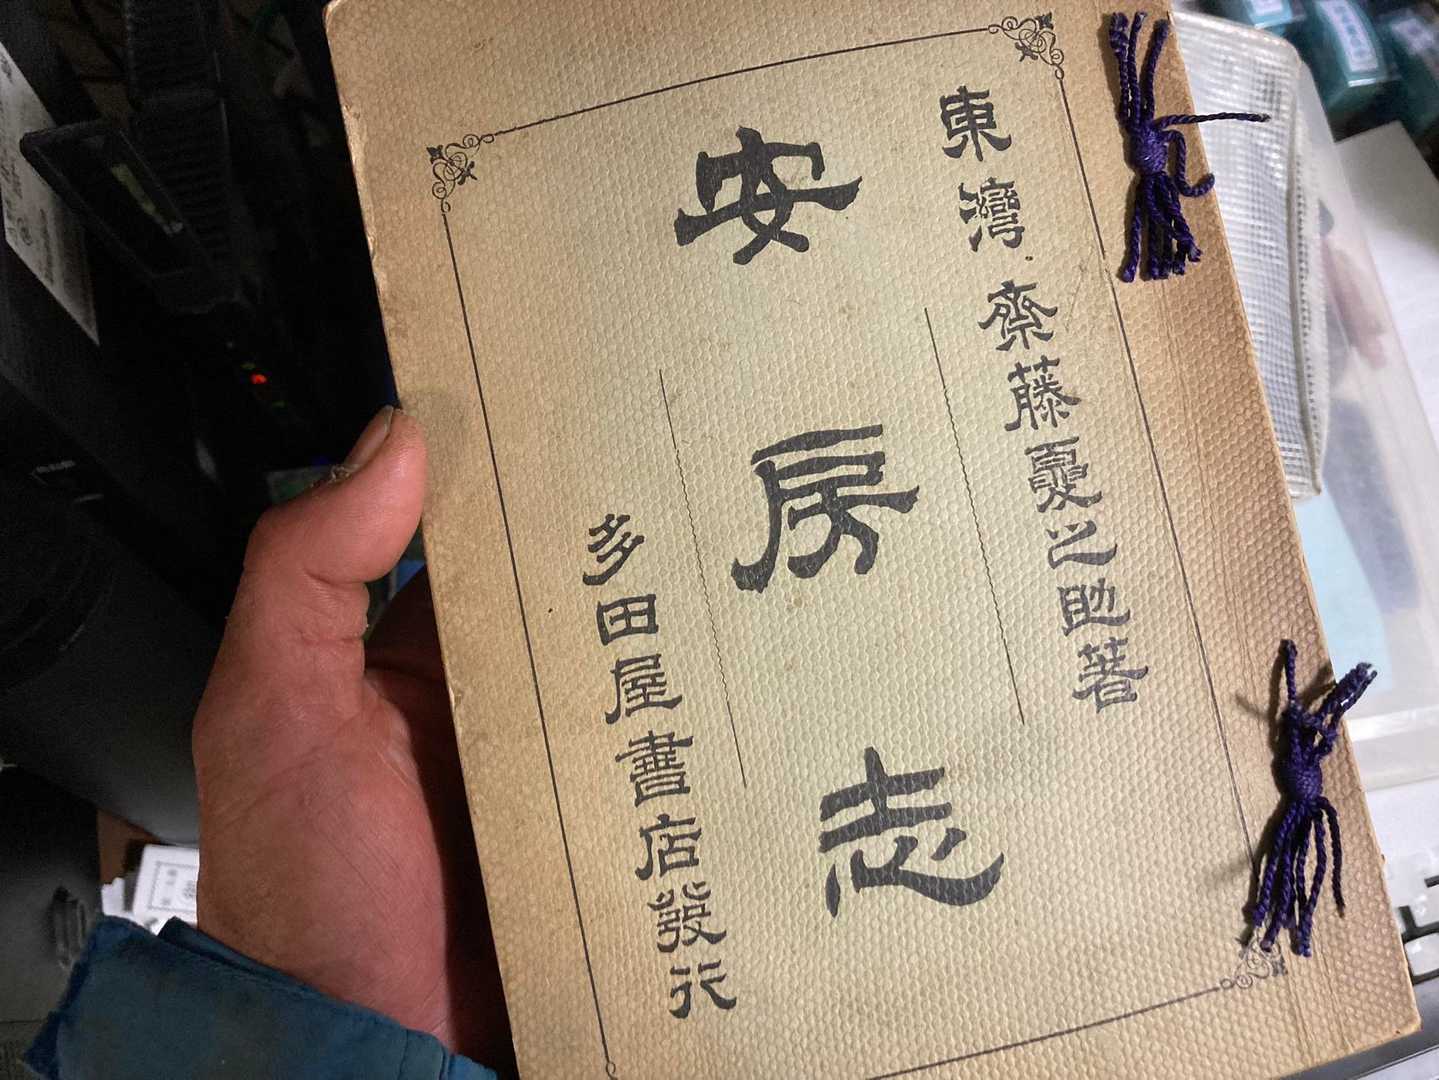 東灣 齋藤夏之助著
安房志
多田屋書店發行